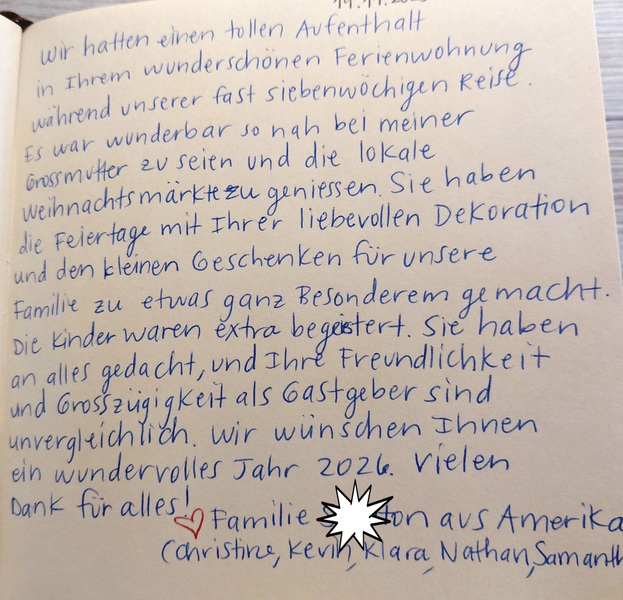 Wir hatten einen tollen Aufenthalt
in Ihrem wunderschönen Ferienwohnung
während unserer fast siebenwöchigen Reise.
Es war wunderbar so nah bei meiner
Grossmutter zu seien und die lokale
Weihnachtsmärkte zu geniessen. Sie haben
die Feiertage mit Ihrer liebevollen Dekoration
und den kleinen Geschenken für unsere
Familie zu etwas ganz Besonderem gemacht.
Die Kinder waren extra begeistert. Sie haben
an alles gedacht, und Ihre Freundlichkeit
und Grosszügigkeit als Gastgeber sind
unvergleichlich. Wir wünschen Ihnen
ein wundervolles Jahr 2026. Vielen
Dank für alles!
Familie ton aus Amerika
(Christine, Kevin, Klara, Nathan, Samanth